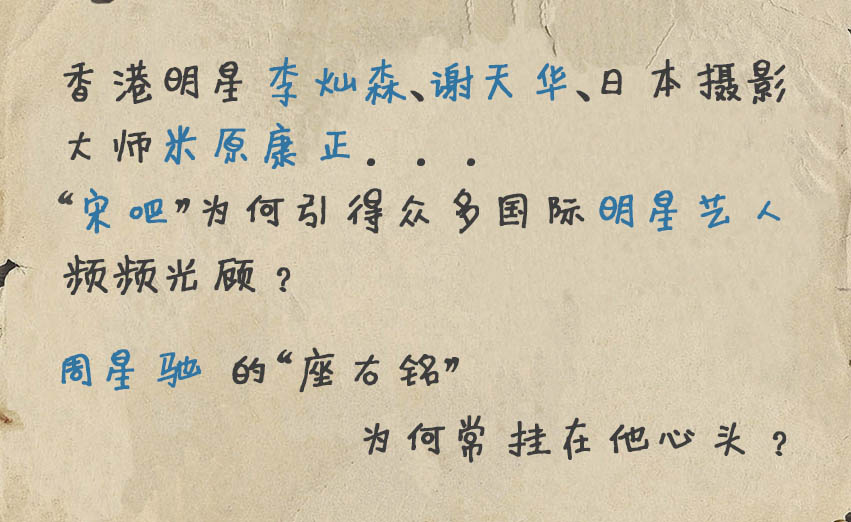 香港明星李灿森、谢天华、日本摄影
大师米原康正...
“宋吧”为何引得众多国际明星艺人
频频光顾？
周星驰的“座右铭”
为何常挂在他心头？